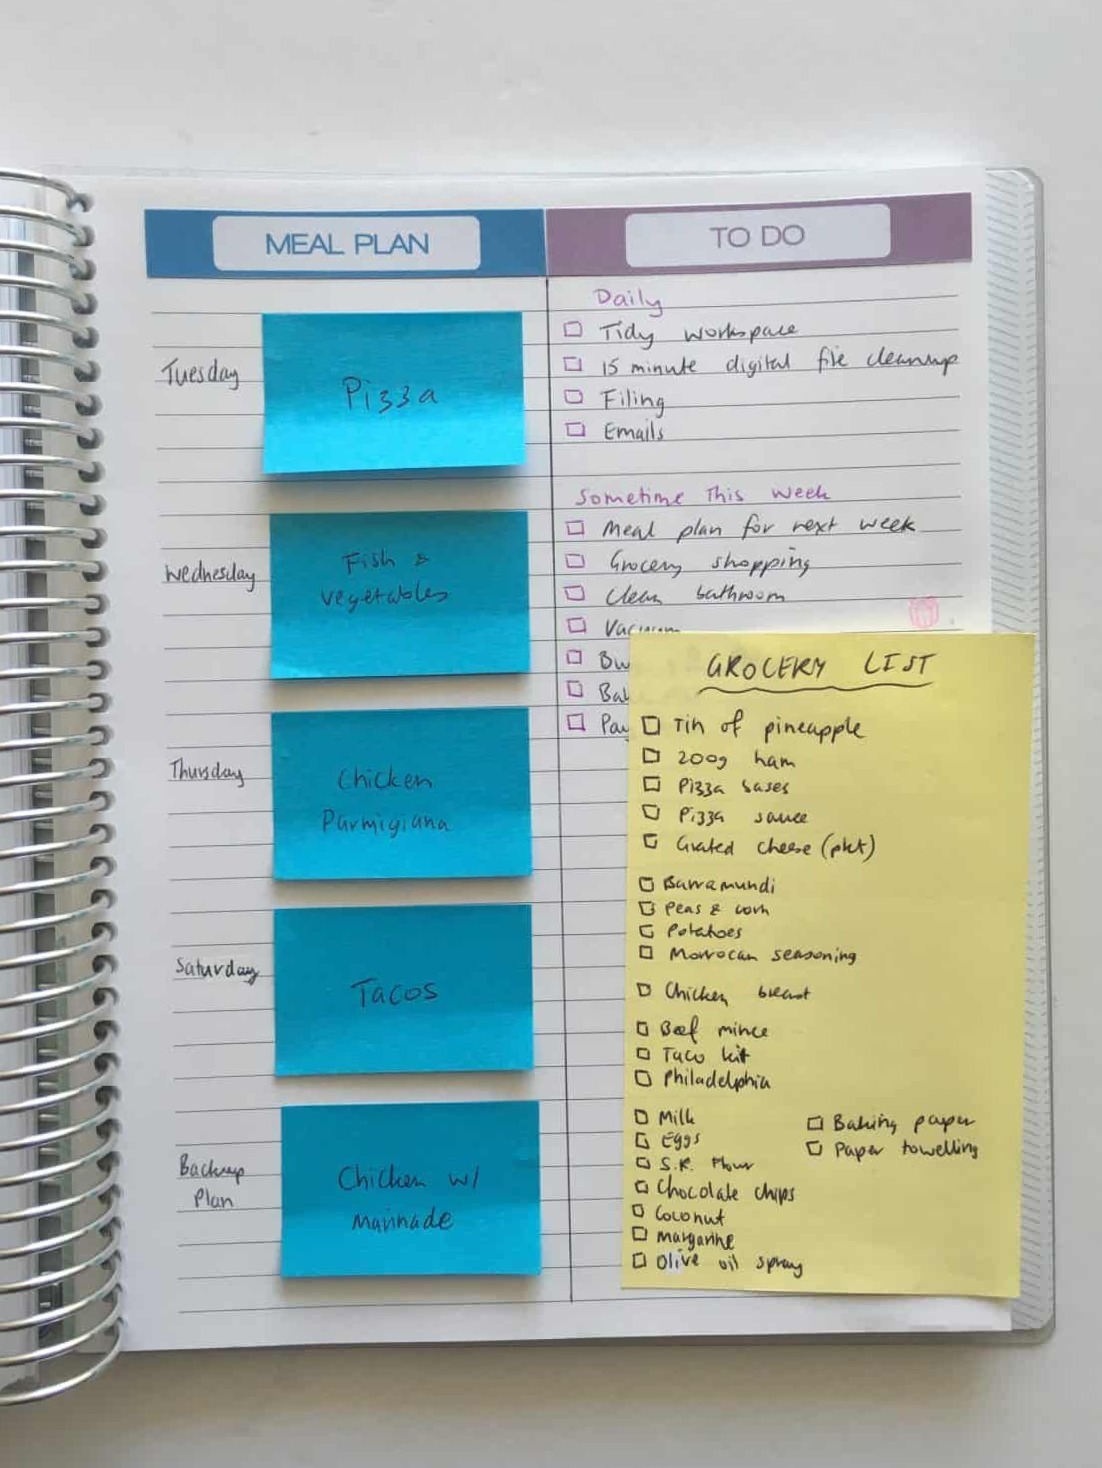 MEAL PLAN
Tuesday
Pizza
Wednesday
Fish &
vegetables
Thursday
Chicken
Parmigiana
Saturday
Tacos
Backup
Plan
Chicken w/
marinade
TO DO
Daily
Tidy workspace
15 minute digital file cleanup
Filing
Emails
Sometime This Week
Meal plan for next week
Grocery shopping
Clean bathroom
Vacuum
GROCERY LIST
Tin of pineapple
200g ham
Pizza bases
Pizza sauce
Grated cheese (pkt)
Barramundi
Peas & corn
Potatoes
Morrocan seasoning
Chicken breast
Beef mince
Taco kit
Philadelphia
Milk
Eggs
S.R. Flour
Chocolate chips
Coconut
Margarine
Olive oil spray
Baking paper
Paper towelling